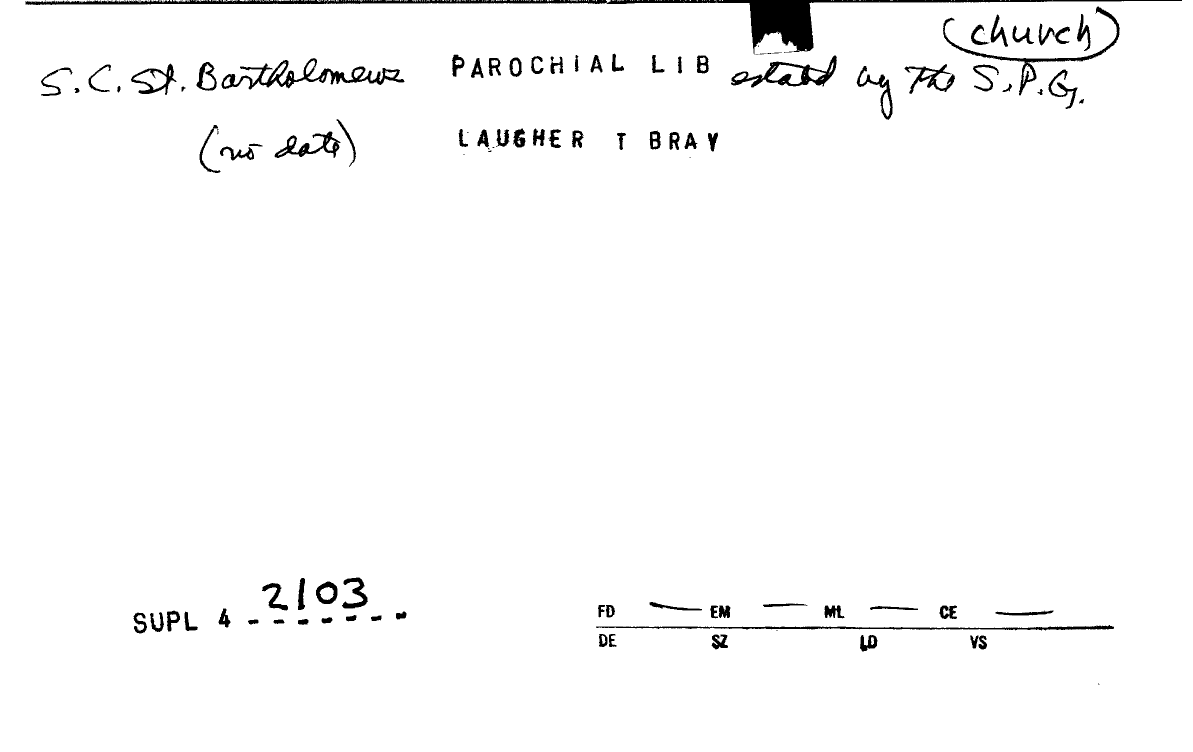 (church)
S.C. St. Bartholomews PAROCHIAL LIB estabd by the S.P.G.
(no date) LAUGHER T BRAY
SUPL 4 2103
FD — EM — ML — CE —
DE SZ LD VS